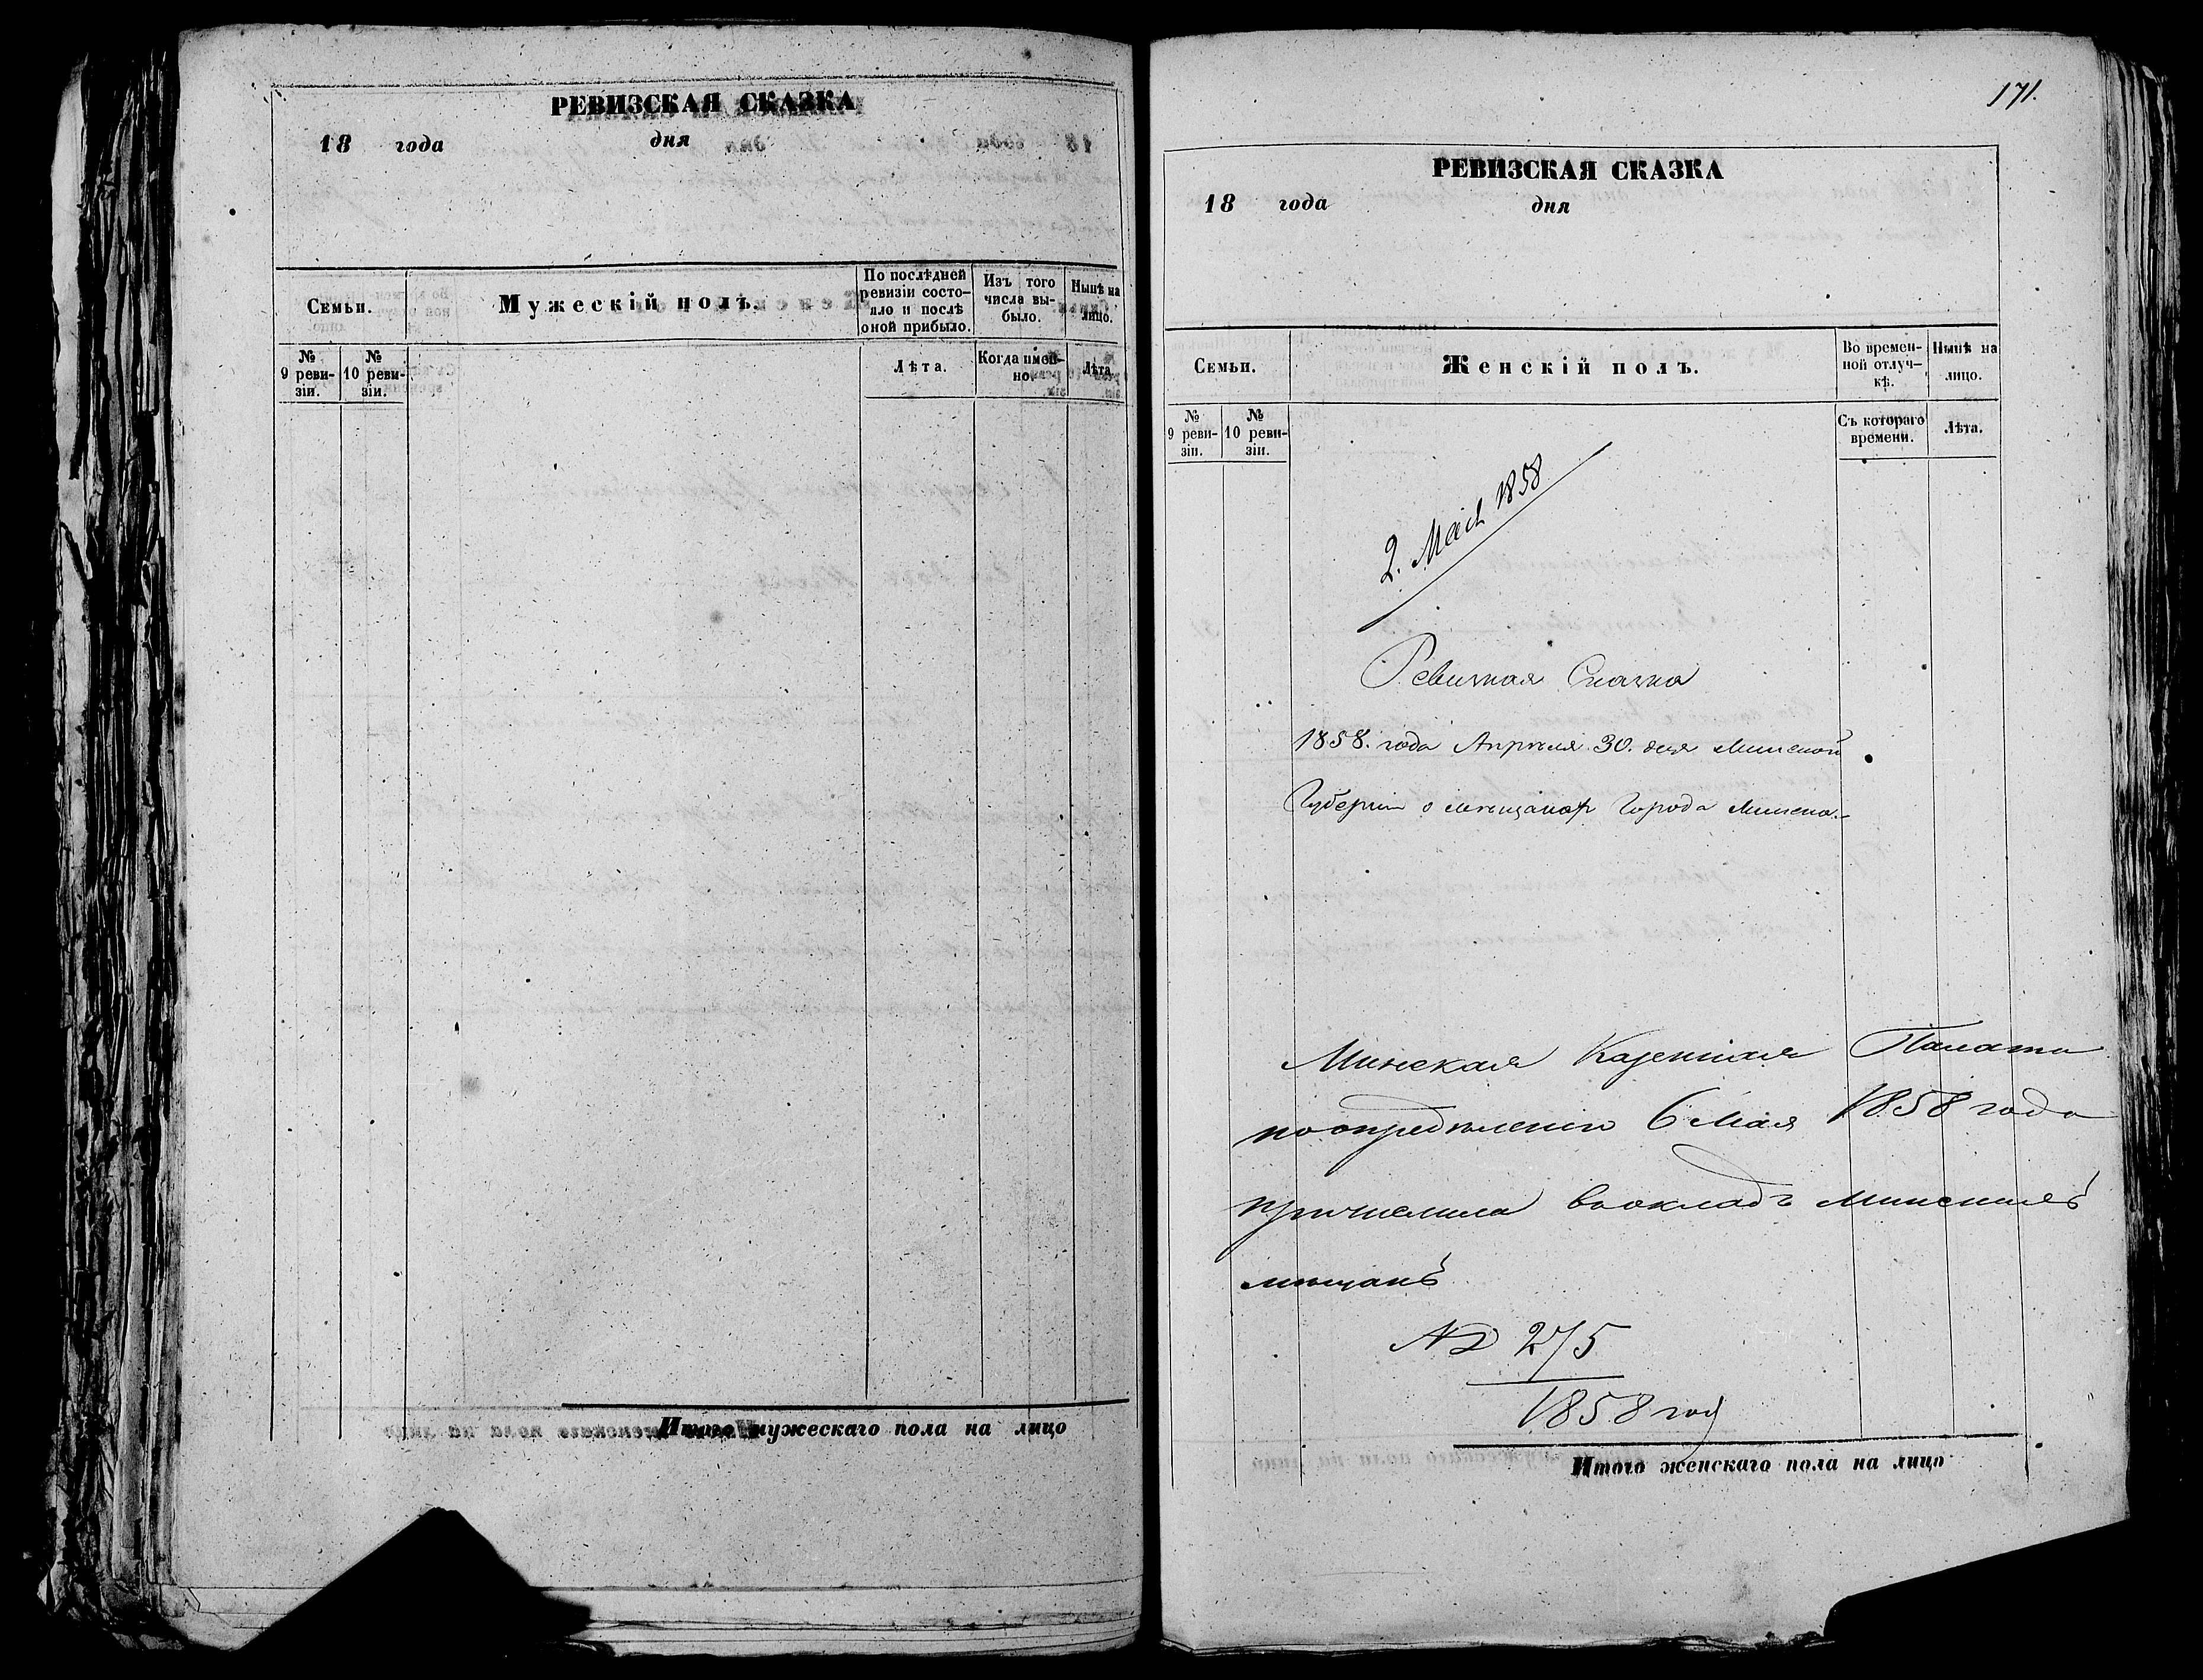 РЕВИЗСКАЯ СКАЗКА
18 года дня
Семьи.
Мужескій полъ.
По послѣдней ревизіи состо-
яло и послѣ оной прибыло.
Изъ того числа вы-
было.
Нынѣ на лицо.
№ 9 реви-
зіи.
№ 10 реви-
зіи.
Лѣта.
Когда имен-
но.
Лѣта
Итого мужескаго пола на лицо
171.
РЕВИЗСКАЯ СКАЗКА
18 года дня
Семьи.
Женскій полъ.
Во времен-
ной отлуч-
кѣ.
Нынѣ на лицо.
№ 9 реви-
зіи.
№ 10 реви-
зіи.
Съ котораго времени.
Лѣта.
2. Мая 1858
Ревизкая Сказка
1858. года Апрѣля 30. дня Минской
Губерніи о мѣщанах Города Минска.
Минская Казенная Палата
по опредѣленію 6 Мая 1858 года
причислила въ окладъ Минскихъ
мѣщанъ
№ 275
1858 год
Итого женскаго пола на лицо